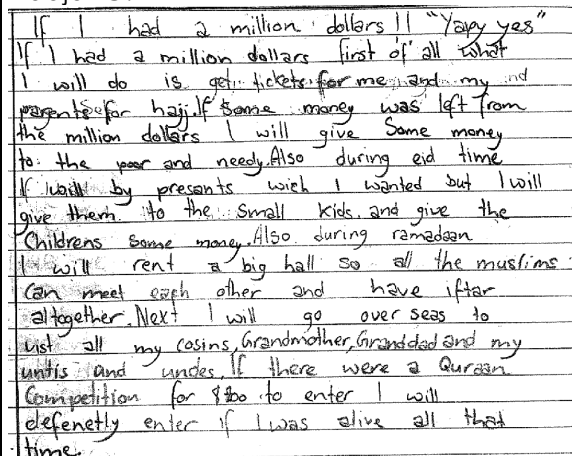 If I had a million dollars!! "Yapy yes"
If I had a million dollars first of all what
I will do is get tickets for me and my
parents for hajj. If some money was left from
the million dollars I will give some money
to the poor and needy. Also during eid time
If I will by presants wich I wanted but I will
give them to the small kids and give the
Childrens some money. Also during ramadaan
I will rent a big hall so all the muslims
can meet each other and have iftar
altogether. Next I will go over seas to
vist all my cosins, Grandmother, Granddad and my
untis and uncles. If there were a Quraan
Competition for $200 to enter I will
defenetly enter if I was alive all that
time.